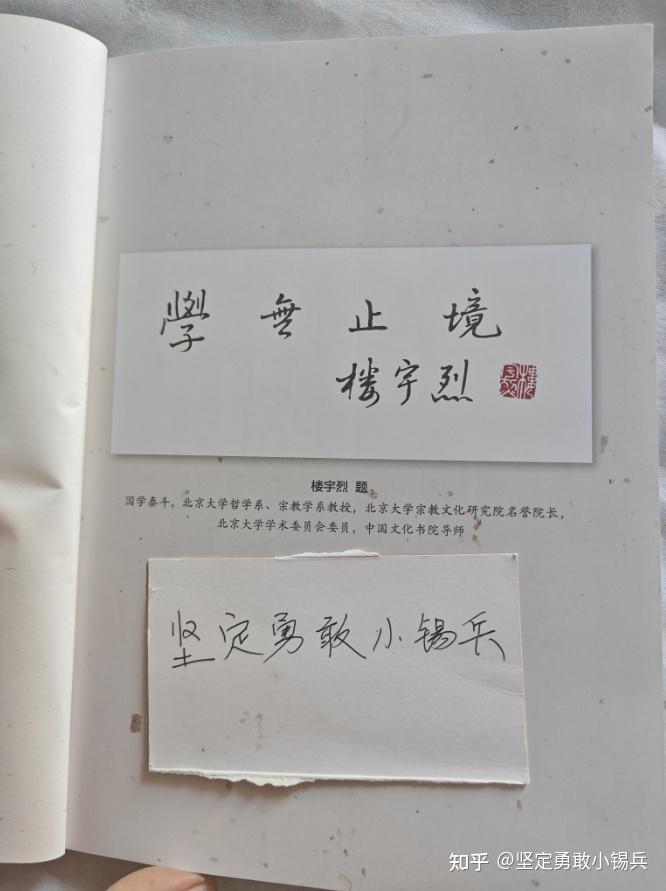 學無止境
楼宇烈
楼宇烈 题
国学泰斗，北京大学哲学系、宗教学系教授，北京大学宗教文化研究院名誉院长，
北京大学学术委员会委员，中国文化书院导师
坚定勇敢小锡兵
知乎 @坚定勇敢小锡兵